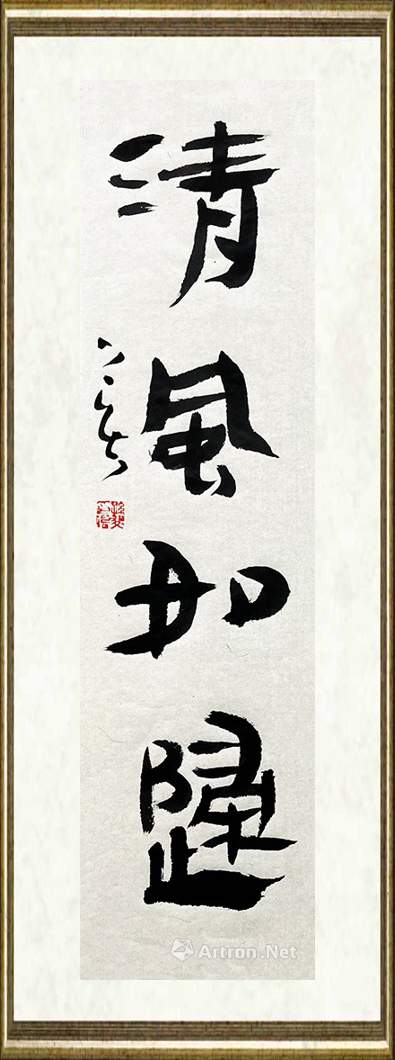 清風如歸
Artron.Net